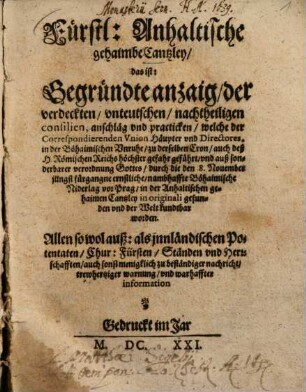 Fürstl: Anhaltische
gehaimbe Cantzley/
das ist:
Begründte anzaig/ der
verdeckten/ vnteutschen/ nachtheiligen
consilien, anschläg vnd practicken/ welche der
Correspondierenden Vnion Häupter vnd Directores,
in der Böhaimischen Vnruhe/ zu derselben Cron/ auch deß
H. Römischen Reichs höchster gefahr geführt/ vnd auß son-
derbarer verordnung Gottes/ durch die den 8. Nouember
jüngst fürgangne ernstliche vnd namhaffte Böhaimische
Niderlag vor Prag/ in der Anhaltischen ge-
haimen Cantzley in originali gefun-
den vnd der Welt kundtbar
worden.
Allen so wol auß: als jnnländischen Po-
tentaten/ Chur: Fürsten/ Ständen vnd Herr-
schafften/ auch sonst menigklich zu beständiger nachricht/
trewhertziger warnung/ vnd warhaffter
information
Gedruckt im Jar
M. DC. XXI.